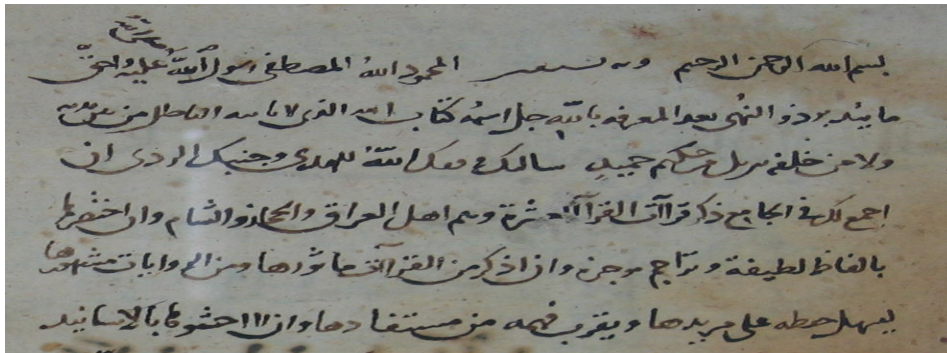 صلى الله
بسم الله الرحمن الرحيم وبه نستعين المحمود الله المصطفى رسول الله عليه واحق
ما يتدبره ذو النهى بعد المعرفة بالله جل اسمه كتاب الله الذى لا ياتيه الباطل من بين يديه
ولا من خلفه تنزيل من حكيم حميد سالت وفقك الله للهدى وجنبك الردى ان
اجمع لك فى الجامع ذكر قراآت القراء العشرة وهم اهل العراق والحجاز والشام وان اختصرها
بالفاظ لطيفة وتراجم موجزة وان اذكر من القراآت ماثورها ومن الروايات مشهورها
ليسهل حفظه على مريدها ويقرب فهمه من مستفادها وان لا احشوها بالاسانيد